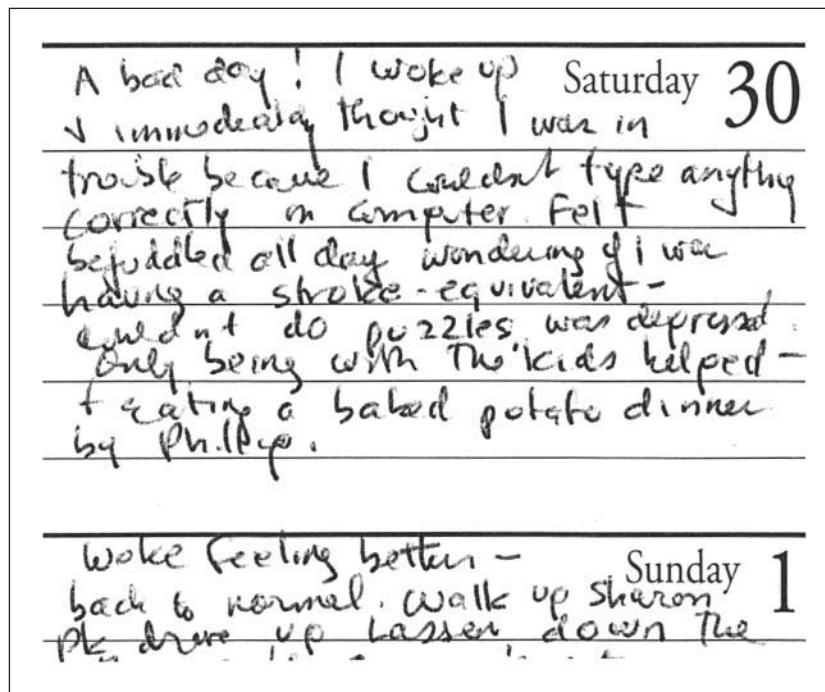 A bad day! I woke up Saturday 30
+ immediately thought I was in
trouble because I couldn't type anything
correctly on computer. Felt
befuddled all day wondering if I was
having a stroke-equivalent-
couldn't do puzzles, was depressed.
Only being with the kids helped-
+ eating a baked potato dinner
by Phillip.
Woke feeling better-
Sunday 1
back to normal. Walk up Sharon
pk drive up Lassen down the